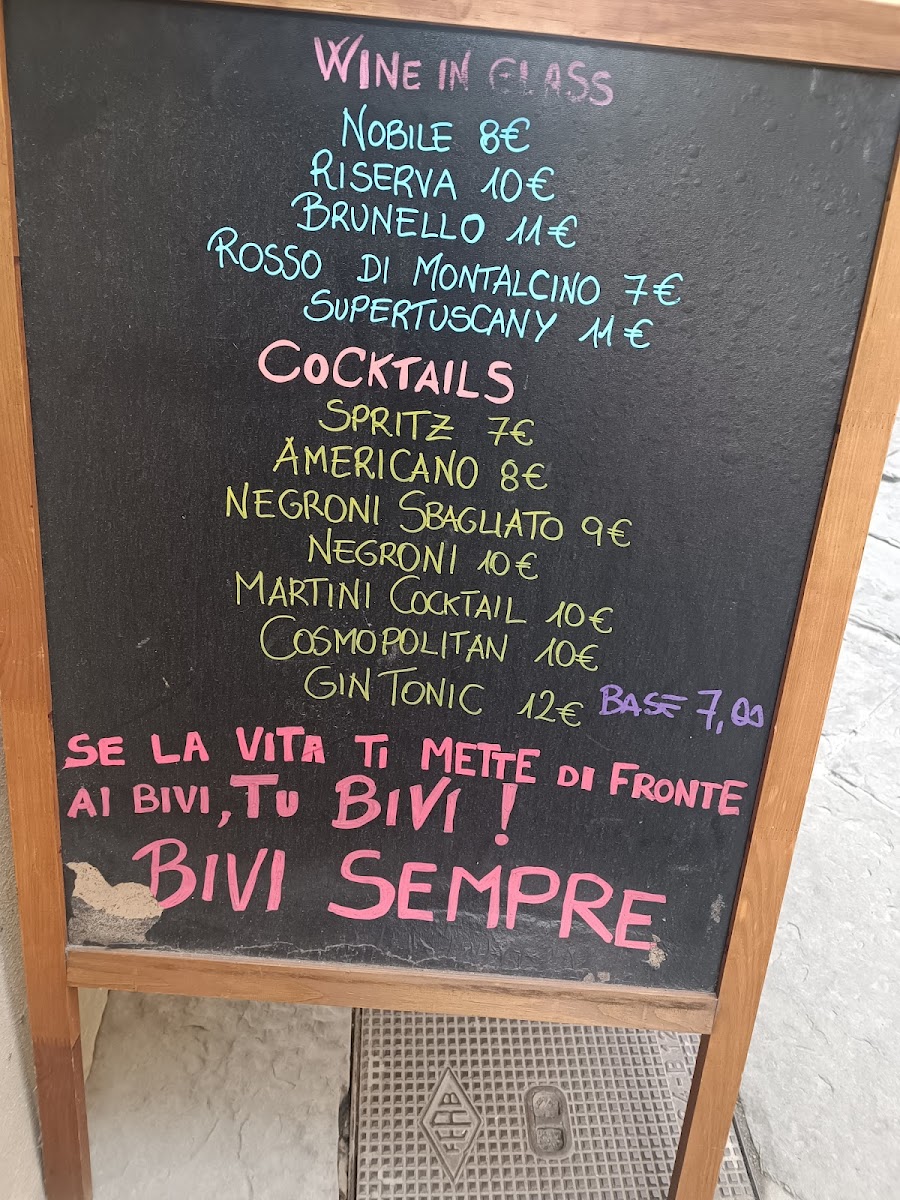 WINE IN GLASS
NOBILE 8€
RISERVA 10€
BRUNELLO 11€
ROSSO DI MONTALCINO 7€
SUPERTUSCANY 11€
COCKTAILS
SPRITZ 7€
AMERICANO 8€
NEGRONI SBAGLIATO 9€
NEGRONI 10€
MARTINI COCKTAIL 10€
COSMOPOLITAN 10€
GIN TONIC 12€ BASE 7,00
SE LA VITA TI METTE DI FRONTE
AI BIVI, TU BIVI!
BIVI SEMPRE